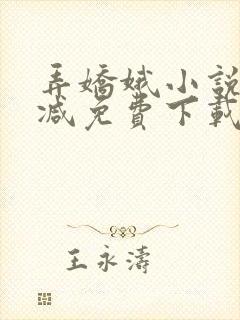 弄嬌娥小說
減免費下載
王永濤